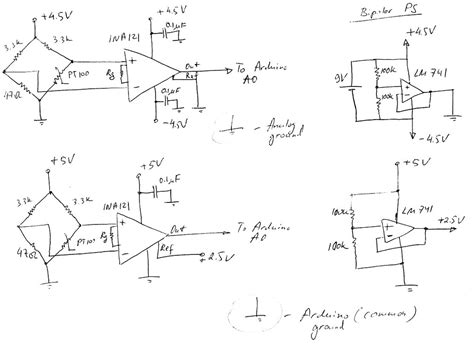 +4.5V
3.3k
3.3k
47Ω
PT100
INA121
+4.5V
0.1µF
Rg
Out
Ref
0.1µF
-4.5V
To Arduino
A0
- Analog
ground
Bipolar PS
9V
+4.5V
100k
100k
LM741
-4.5V
+5V
3.3k
3.3k
47Ω
PT100
INA121
+5V
0.1µF
Rg
Out
Ref
+2.5V
To Arduino
A0
+5V
100k
100k
LM741
+2.5V
- Arduino (common)
ground